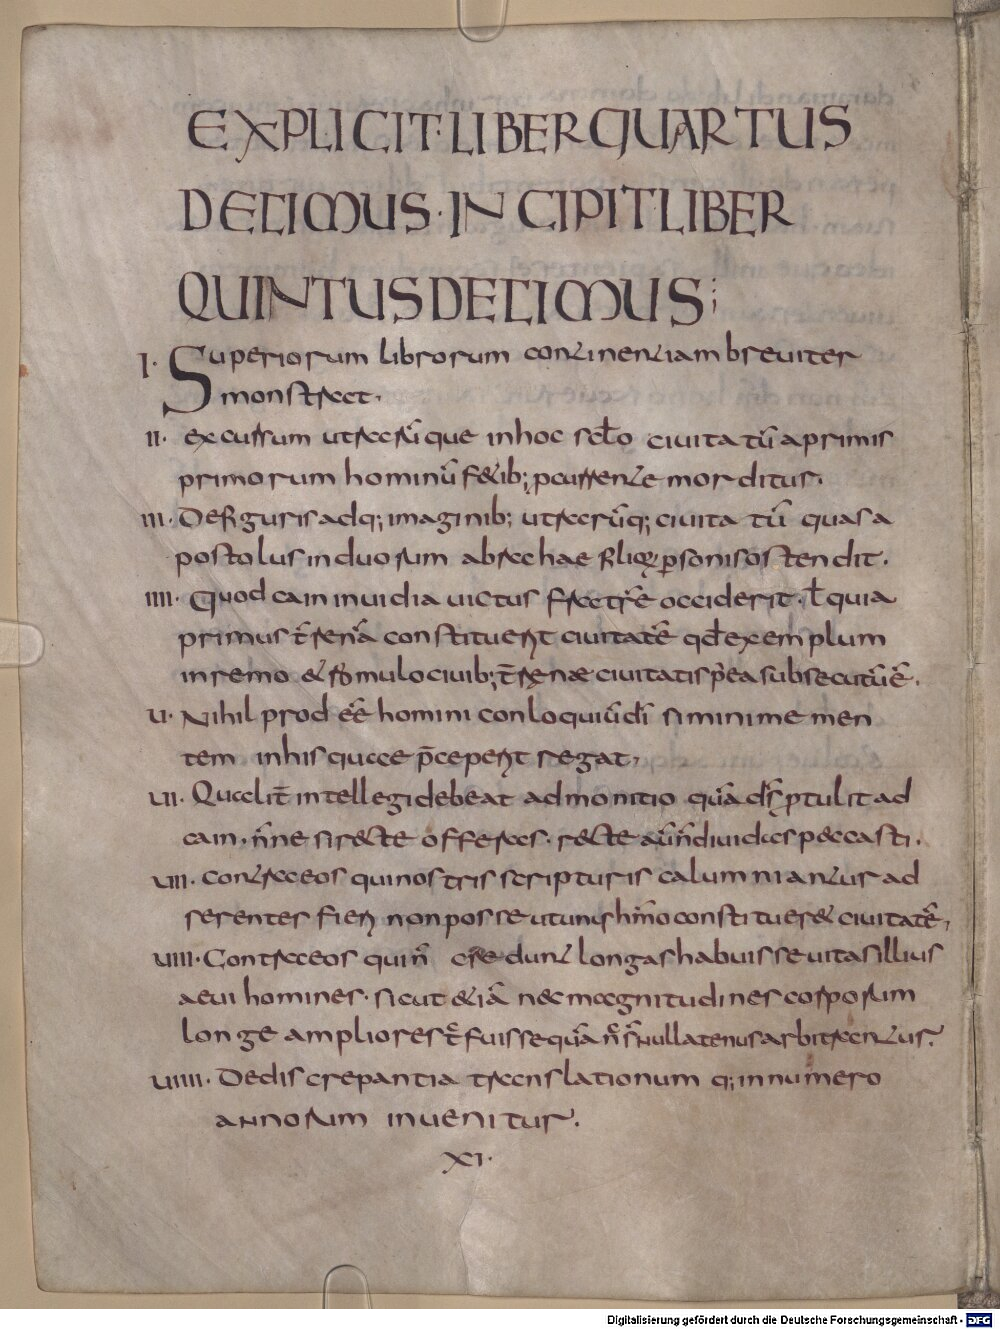 EXPLICIT·LIBER QUARTUS
DECIMUS·INCIPIT LIBER
QUINTUS DECIMUS
I· Superiorum librorum continentiam breuiter
monstrat·
II· excursum utrarūque in hoc scł̄o ciuitatū a primis
primorum hominū frīb; pcurrente morditur·
III· De figuris adq; imaginib; utrarūq; ciuitatū quas a
postolus in duorum abrahae filiorū psonis ostendit·
IIII· Quod cain inuidia uictus fratrē occiderit· ł quia
primus t̄renā constituerit ciuitatē qđ exemplum
in remo & romulo ciuib; t̄renae ciuitatis p̄ea subsecutū ē·
U· Nihil prod eē homini conloquiū dī si minime men
tem in his quae p̄ceperit regat·
UII· Qualit̄ intellegi debeat admonitio quā ds̄ ptulit ad
cain· n̄ne si recte offeras· recte aū n̄ diuidas peccasti·
UIII· contra eos qui nostris scripturis calumniantur ad
serentes fieri non posse ut unus hōmo constitueret ciuitatē,
UIIII· Contra eos qui n̄ credunt longas habuisse uitas illius
aeui homines· sicut &iā nec magnitudines corporum
longe ampliores t̄ fuisse quā n̄s̄ nullatenus arbitrantur·
UIIII· De discrepantia translationum q; in numero
annorum inuenitur·
XI·
Digitalisierung gefördert durch die Deutsche Forschungsgemeinschaft - DFG